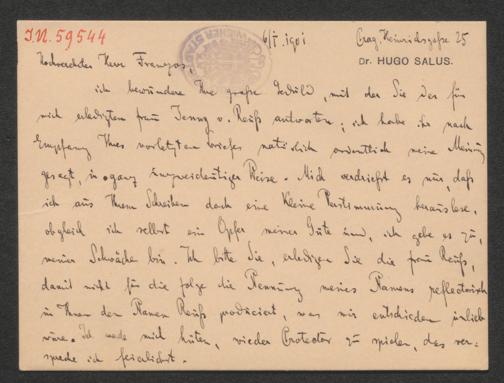 I.N. 59544
6/I. 1901
Prag, Heinrichsgasse 25
Dr. HUGO SALUS.
Hochverehrter Herr Franzos,
ich bewundere Ihre große Geduld, mit der Sie der für
mich erledigten Frau Jenny v. Reuß antworten; ich habe ihr nach
Empfang Ihres vorletzten Briefes natürlich ordentlich meine Meinung
gesagt, in ganz unzweideutiger Weise. Mich verdrießt es nur, daß
ich aus Ihrem Schreiben doch eine kleine Verstimmung herauslese,
obgleich ich selbst ein Opfer meiner Güte und, ich gebe es zu,
meiner Schwäche bin. Ich bitte Sie, erledigen Sie die Frau Reuß,
damit nicht für die Folge die Nennung meines Namens reflectorisch
in Ihnen den Namen Reuß produciert, was mir entschieden unlieb
wäre. Ich werde mich hüten, wieder Protector zu spielen, das ver-
spreche ich feierlichst.